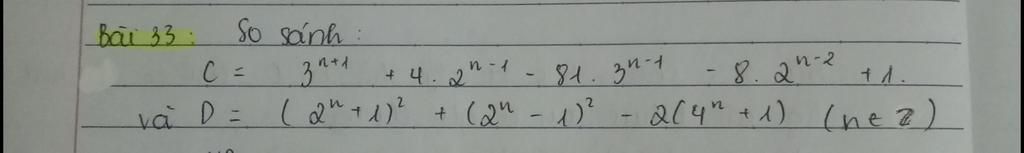 Bài 33: So sánh:
C = 3^{n+1} + 4. 2^{n-1} - 81. 3^{n-1} - 8. 2^{n-2} + 1.
và D = (2^n + 1)^2 + (2^n - 1)^2 - 2(4^n + 1) (n ∈ Z)